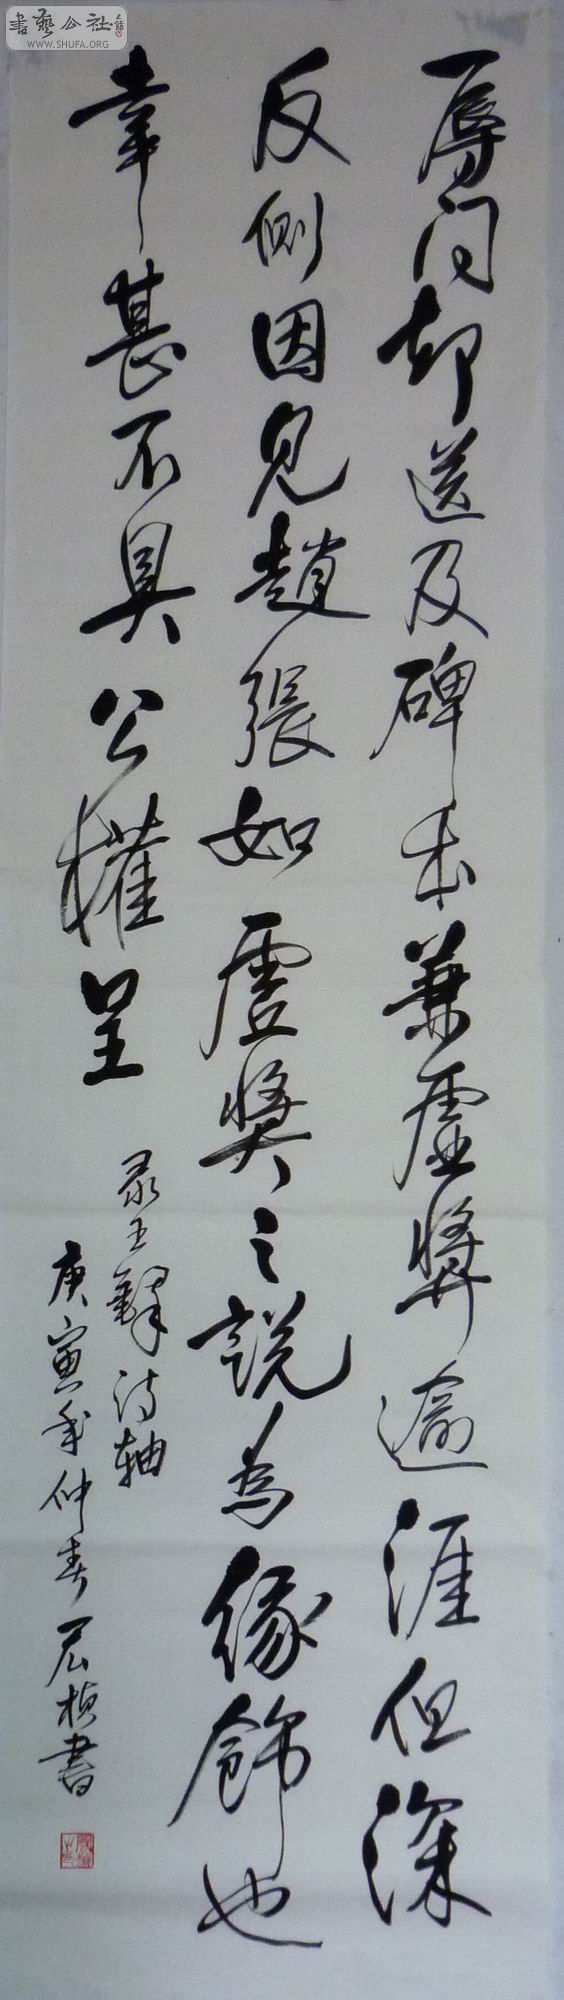 書藝公社
WWW.SHUFA.ORG
辱问却送及碑本兼虚奬逾涯但深
反側因見趙張如虚奬之説為緣飾也
幸甚不具公權呈
录王鐸诗轴
庚寅年仲春君楨書